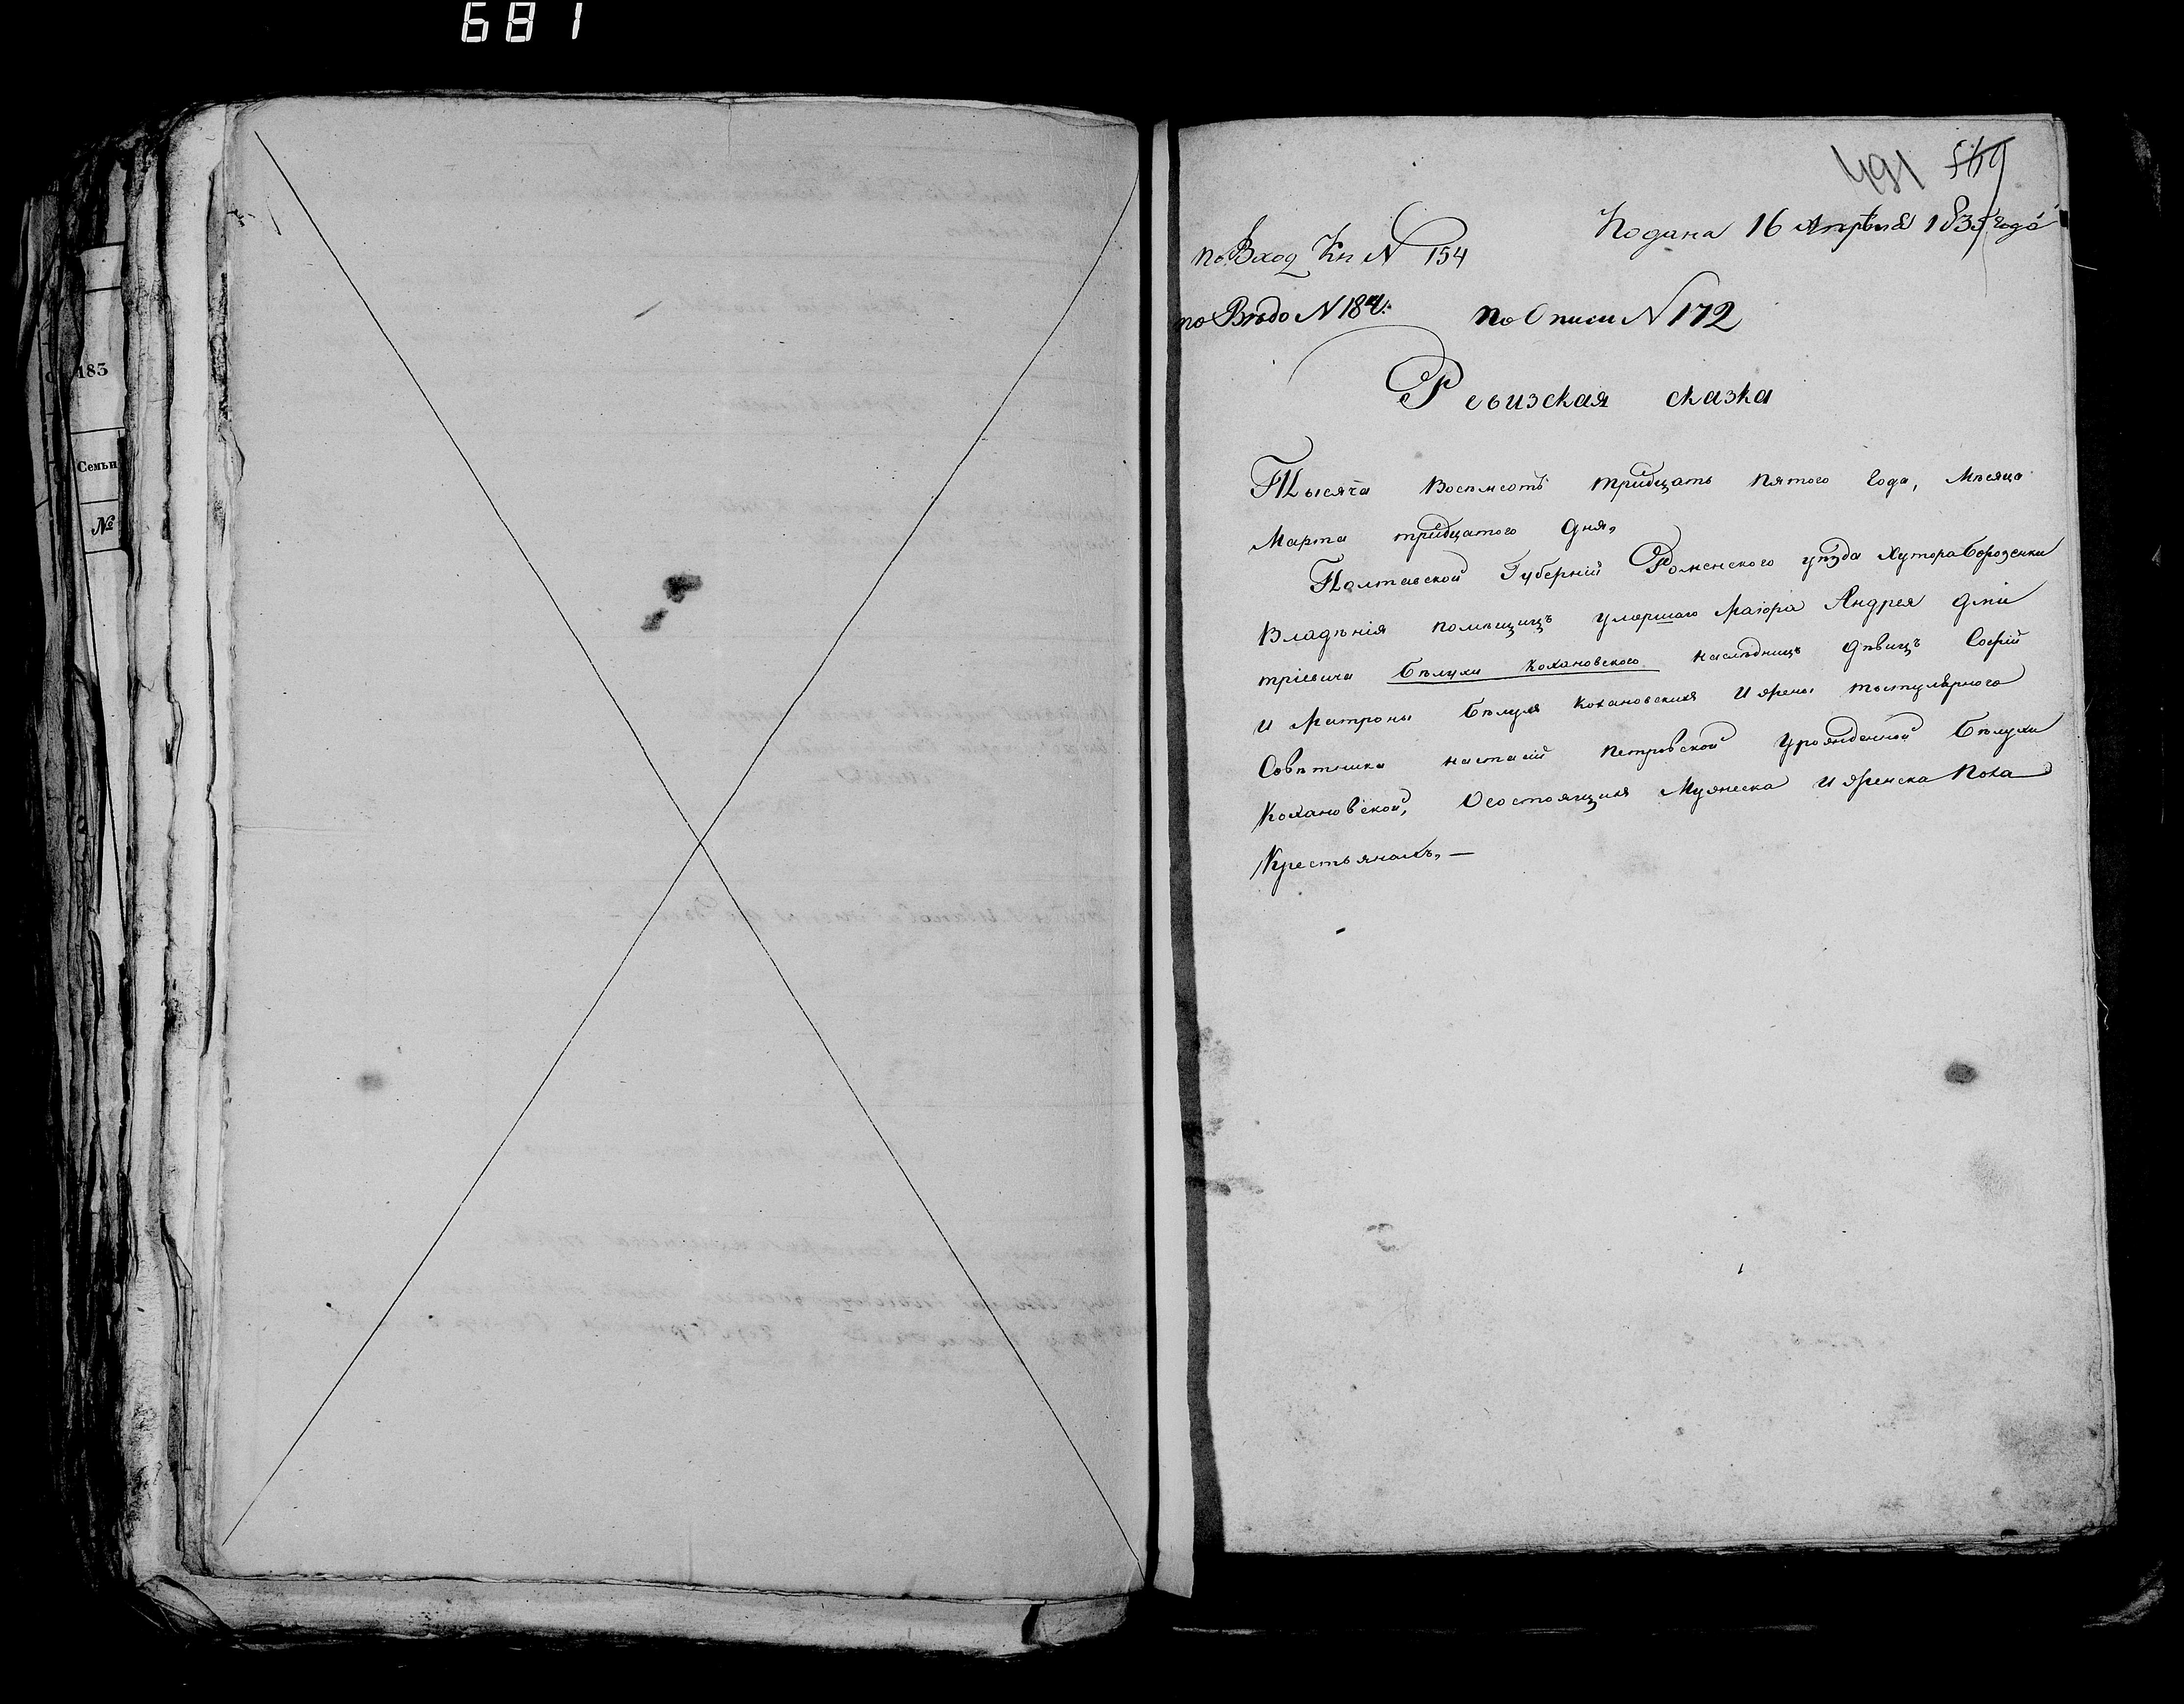 681
183
Семьи
№
491 519
Подана 16 Апрѣля 1835 года
по Вход Кн № 154
по Вѣдо № 184.
по Описи № 172
Ревизская сказка
Тысяча Восемсотъ тридцать пятого года, Мѣсяца
Марта тридцатого дня,
Полтавской Губерніи Роменского уѣзда Хутора Борозенки
Владѣнія помѣщицъ умершаго Маіора Андрея дми
тріевича Бѣлухи Кохановского наслѣдницъ дѣвицъ Софіи
и Матроны Бѣлухъ Кохановскихъ и жены титулярного
Совѣтника настасіи Петровской урожденной Бѣлухи
Кохановской, О состоящихъ Мужеска и женска Пола
Крестьянахъ,—